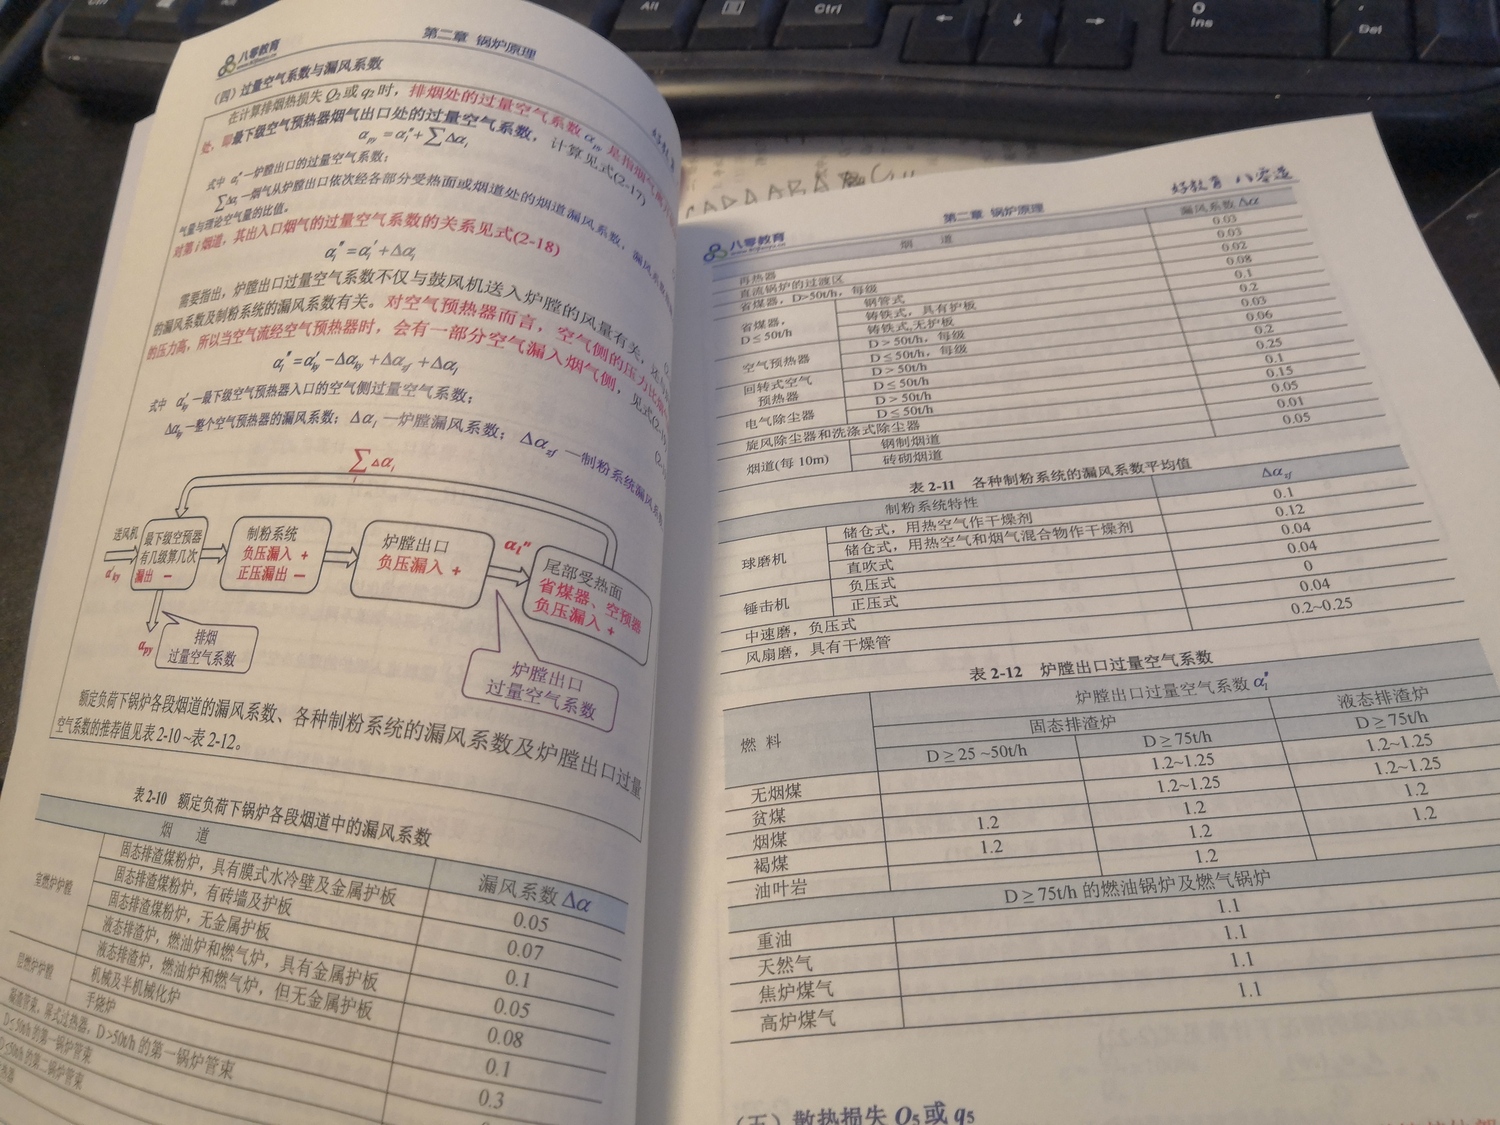 八零教育
第二章 锅炉原理
（四）过量空气系数与漏风系数
在计算排烟热损失 Q₂ 或 q₂ 时，排烟处的过量空气系数 α_py 是指烟气离
处，即最下级空气预热器烟气出口处的过量空气系数，计算见式(2-17)
α_py = α₁″ + ∑Δα_i
式中 α₁″—炉膛出口的过量空气系数；
∑Δα_i—烟气从炉膛出口依次经各部分受热面或烟道处的烟道漏风系数，漏风
气量与理论空气量的比值。
对第 i 烟道，其出入口烟气的过量空气系数的关系见式(2-18)
α_i″ = α_i′ + Δα_i
需要指出，炉膛出口过量空气系数不仅与鼓风机送入炉膛的风量有关，
的漏风系数及制粉系统的漏风系数有关。对空气预热器而言，空气侧的压力比烟气
的压力高，所以当空气流经空气预热器时，会有一部分空气漏入烟气侧，见式(2-
α₁″ = α′_ky − Δα_ky + Δα_zf + Δα_l
式中 α′_ky—最下级空气预热器入口的空气侧过量空气系数；
Δα_ky—整个空气预热器的漏风系数；Δα_l—炉膛漏风系数；Δα_zf—制粉系统漏风系
∑Δα_i
送风机
α′_ky
最下级空预器
有几级算几次
漏出 −
制粉系统
负压漏入 +
正压漏出 −
炉膛出口
负压漏入 +
α₁″
尾部受热面
省煤器、空预器
负压漏入 +
α_py
排烟
过量空气系数
炉膛出口
过量空气系数
额定负荷下锅炉各段烟道的漏风系数、各种制粉系统的漏风系数及炉膛出口过量
空气系数的推荐值见表 2-10～表 2-12。
表 2-10 额定负荷下锅炉各段烟道中的漏风系数
烟 道 漏风系数 Δα
室燃炉炉膛
固态排渣煤粉炉，具有膜式水冷壁及金属护板 0.05
固态排渣煤粉炉，有砖墙及护板 0.07
固态排渣煤粉炉，无金属护板 0.1
液态排渣炉，燃油炉和燃气炉，具有金属护板 0.05
液态排渣炉，燃油炉和燃气炉，但无金属护板 0.08
层燃炉炉膛
机械及半机械化炉 0.1
手烧炉 0.3
D>50t/h 的第一锅炉管束
的第一锅炉管束
的第二锅炉管束
好教育 八零造
八零教育
第二章 锅炉原理
烟 道 漏风系数 Δα
再热器 0.03
直流锅炉的过渡区 0.03
省煤器，D>50t/h，每级 0.02
省煤器，D≤50t/h
钢管式 0.08
铸铁式，具有护板 0.1
铸铁式，无护板 0.2
空气预热器
D>50t/h，每级 0.03
D≤50t/h，每级 0.06
回转式空气预热器
D>50t/h 0.2
D≤50t/h 0.25
电气除尘器
D>50t/h 0.1
D≤50t/h 0.15
旋风除尘器和洗涤式除尘器 0.05
烟道(每 10m)
钢制烟道 0.01
砖砌烟道 0.05
表 2-11 各种制粉系统的漏风系数平均值
制粉系统特性 Δα_zf
球磨机
储仓式，用热空气作干燥剂 0.1
储仓式，用热空气和烟气混合物作干燥剂 0.12
直吹式 0.04
锤击机
负压式 0.04
正压式 0
中速磨，负压式 0.04
风扇磨，具有干燥管 0.2~0.25
表 2-12 炉膛出口过量空气系数
燃 料
炉膛出口过量空气系数 α₁″
固态排渣炉 液态排渣炉
D≥25 ~50t/h D≥75t/h D≥75t/h
无烟煤 1.2~1.25 1.2~1.25
贫煤 1.2~1.25 1.2~1.25
烟煤 1.2 1.2 1.2
褐煤 1.2 1.2 1.2
油叶岩 1.2
D≥75t/h 的燃油锅炉及燃气锅炉
重油 1.1
天然气 1.1
焦炉煤气 1.1
高炉煤气 1.1
（五）散热损失 Q₅ 或 q₅
Alt
Ctrl
0
Ins
Del